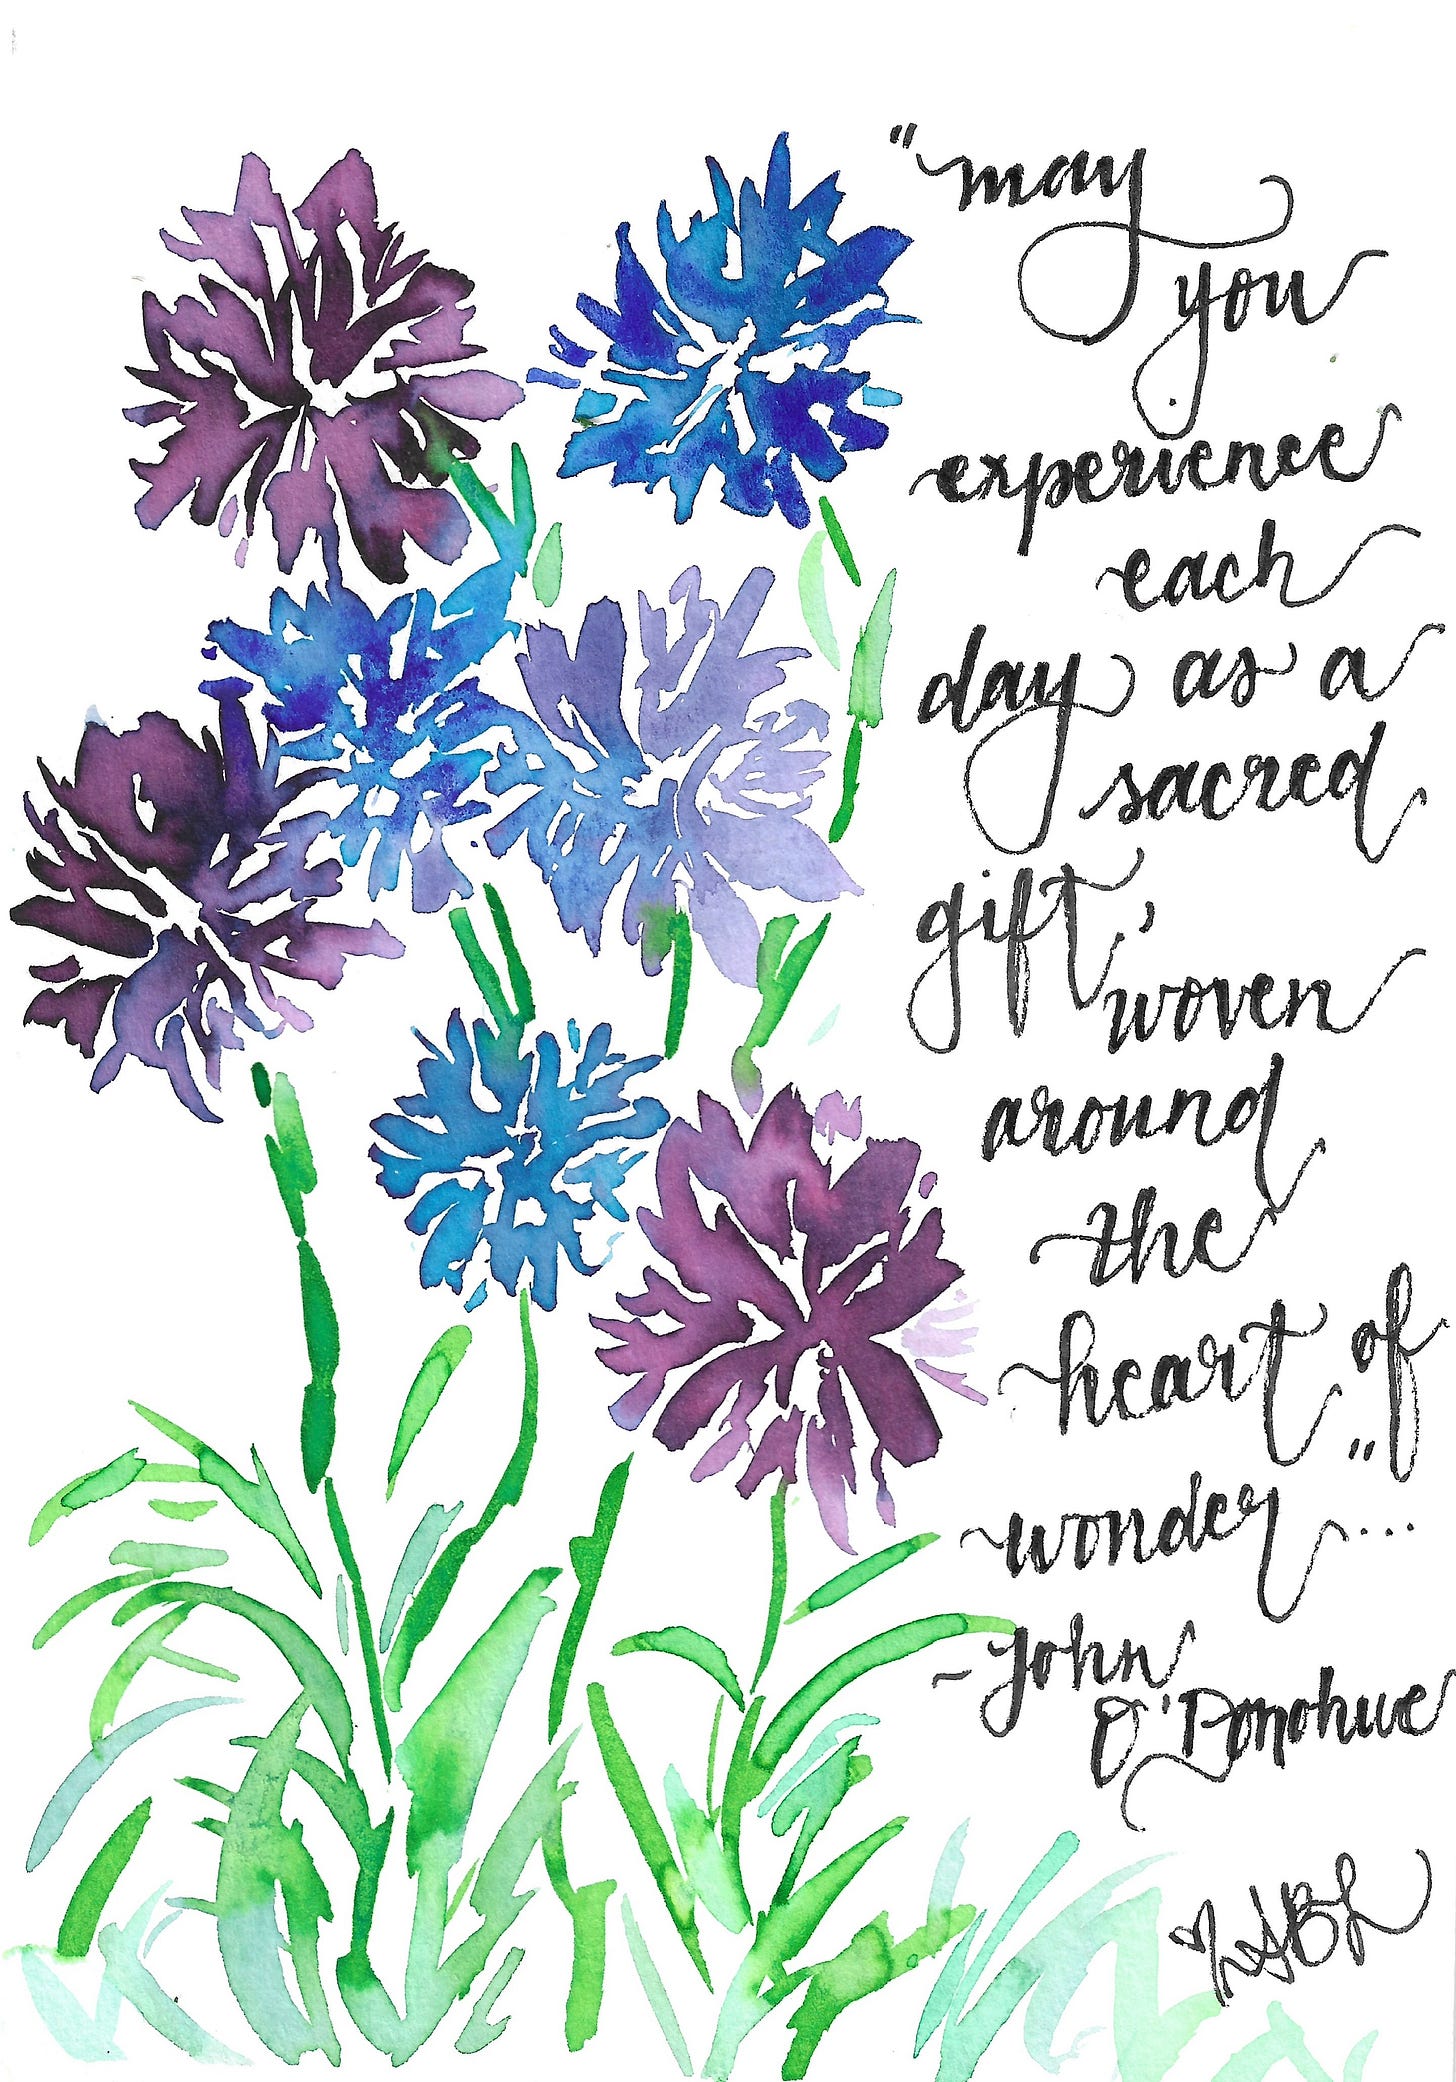 "may
you
experience
each
day as a
sacred
gift,
woven
around
the
heart of
wonder"...
~John
O'Donohue